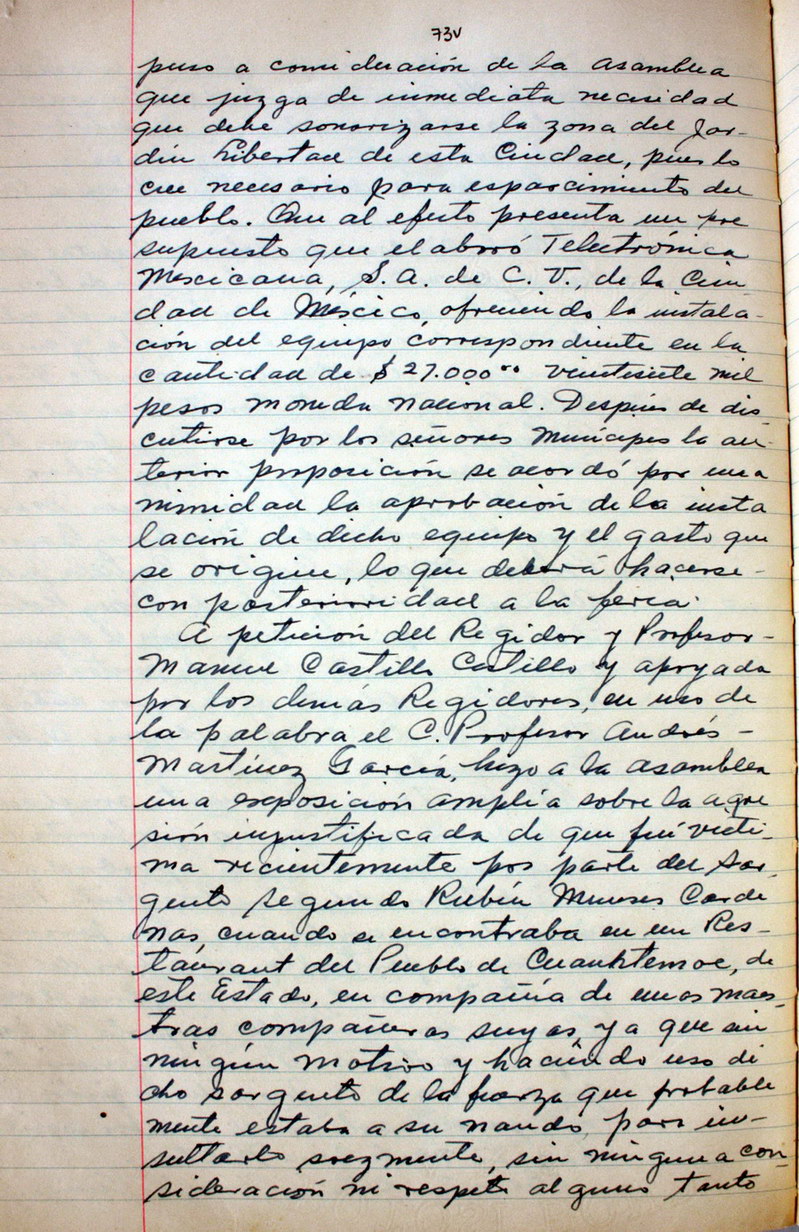 73v
puso a consideración de la asamblea
que juzga de inmediata necesidad
que debe sonorizarse la zona del Jar-
dín Libertad de esta Ciudad, pues lo
cree necesario para esparcimiento del
pueblo. Que al efecto presenta un pre
supuesto que elaboró Telectrónica
Mexicana, S.A. de C.V., de la Ciu
dad de México, ofreciendo la instala-
ción del equipo correspondiente en la
cantidad de $27.000.00 veintisiete mil
pesos moneda nacional. Después de dis
cutirse por los señores Munícipes la an-
terior proposición se acordó por una
nimidad la aprobación de la insta
lación de dicho equipo y el gasto que
se origine, lo que deberá hacerse-
con posterioridad a la feria.
A petición del Regidor y Profesor-
Manuel Castillo Castillo y apoyada
por los demás Regidores, en uso de
la palabra el C. Profesor Andrés-
Martínez García, hizo a la asamblea
una exposición amplia sobre la agre
sión injustificada de que fué vícti-
ma recientemente por parte del Sar-
gento Segundo Rubén Meneses Carde
nas, cuando se encontraba en un Res-
taurant del Pueblo de Cuauhtemoc, de
este Estado, en compañía de unos maes-
tros compañeros suyos, ya que sin
ningún motivo y haciendo uso di
cho sargento de la fuerza que probable
mente estaba a su mando, para in-
sultarlo soezmente, sin ninguna con-
sideración ni respeto alguno tanto